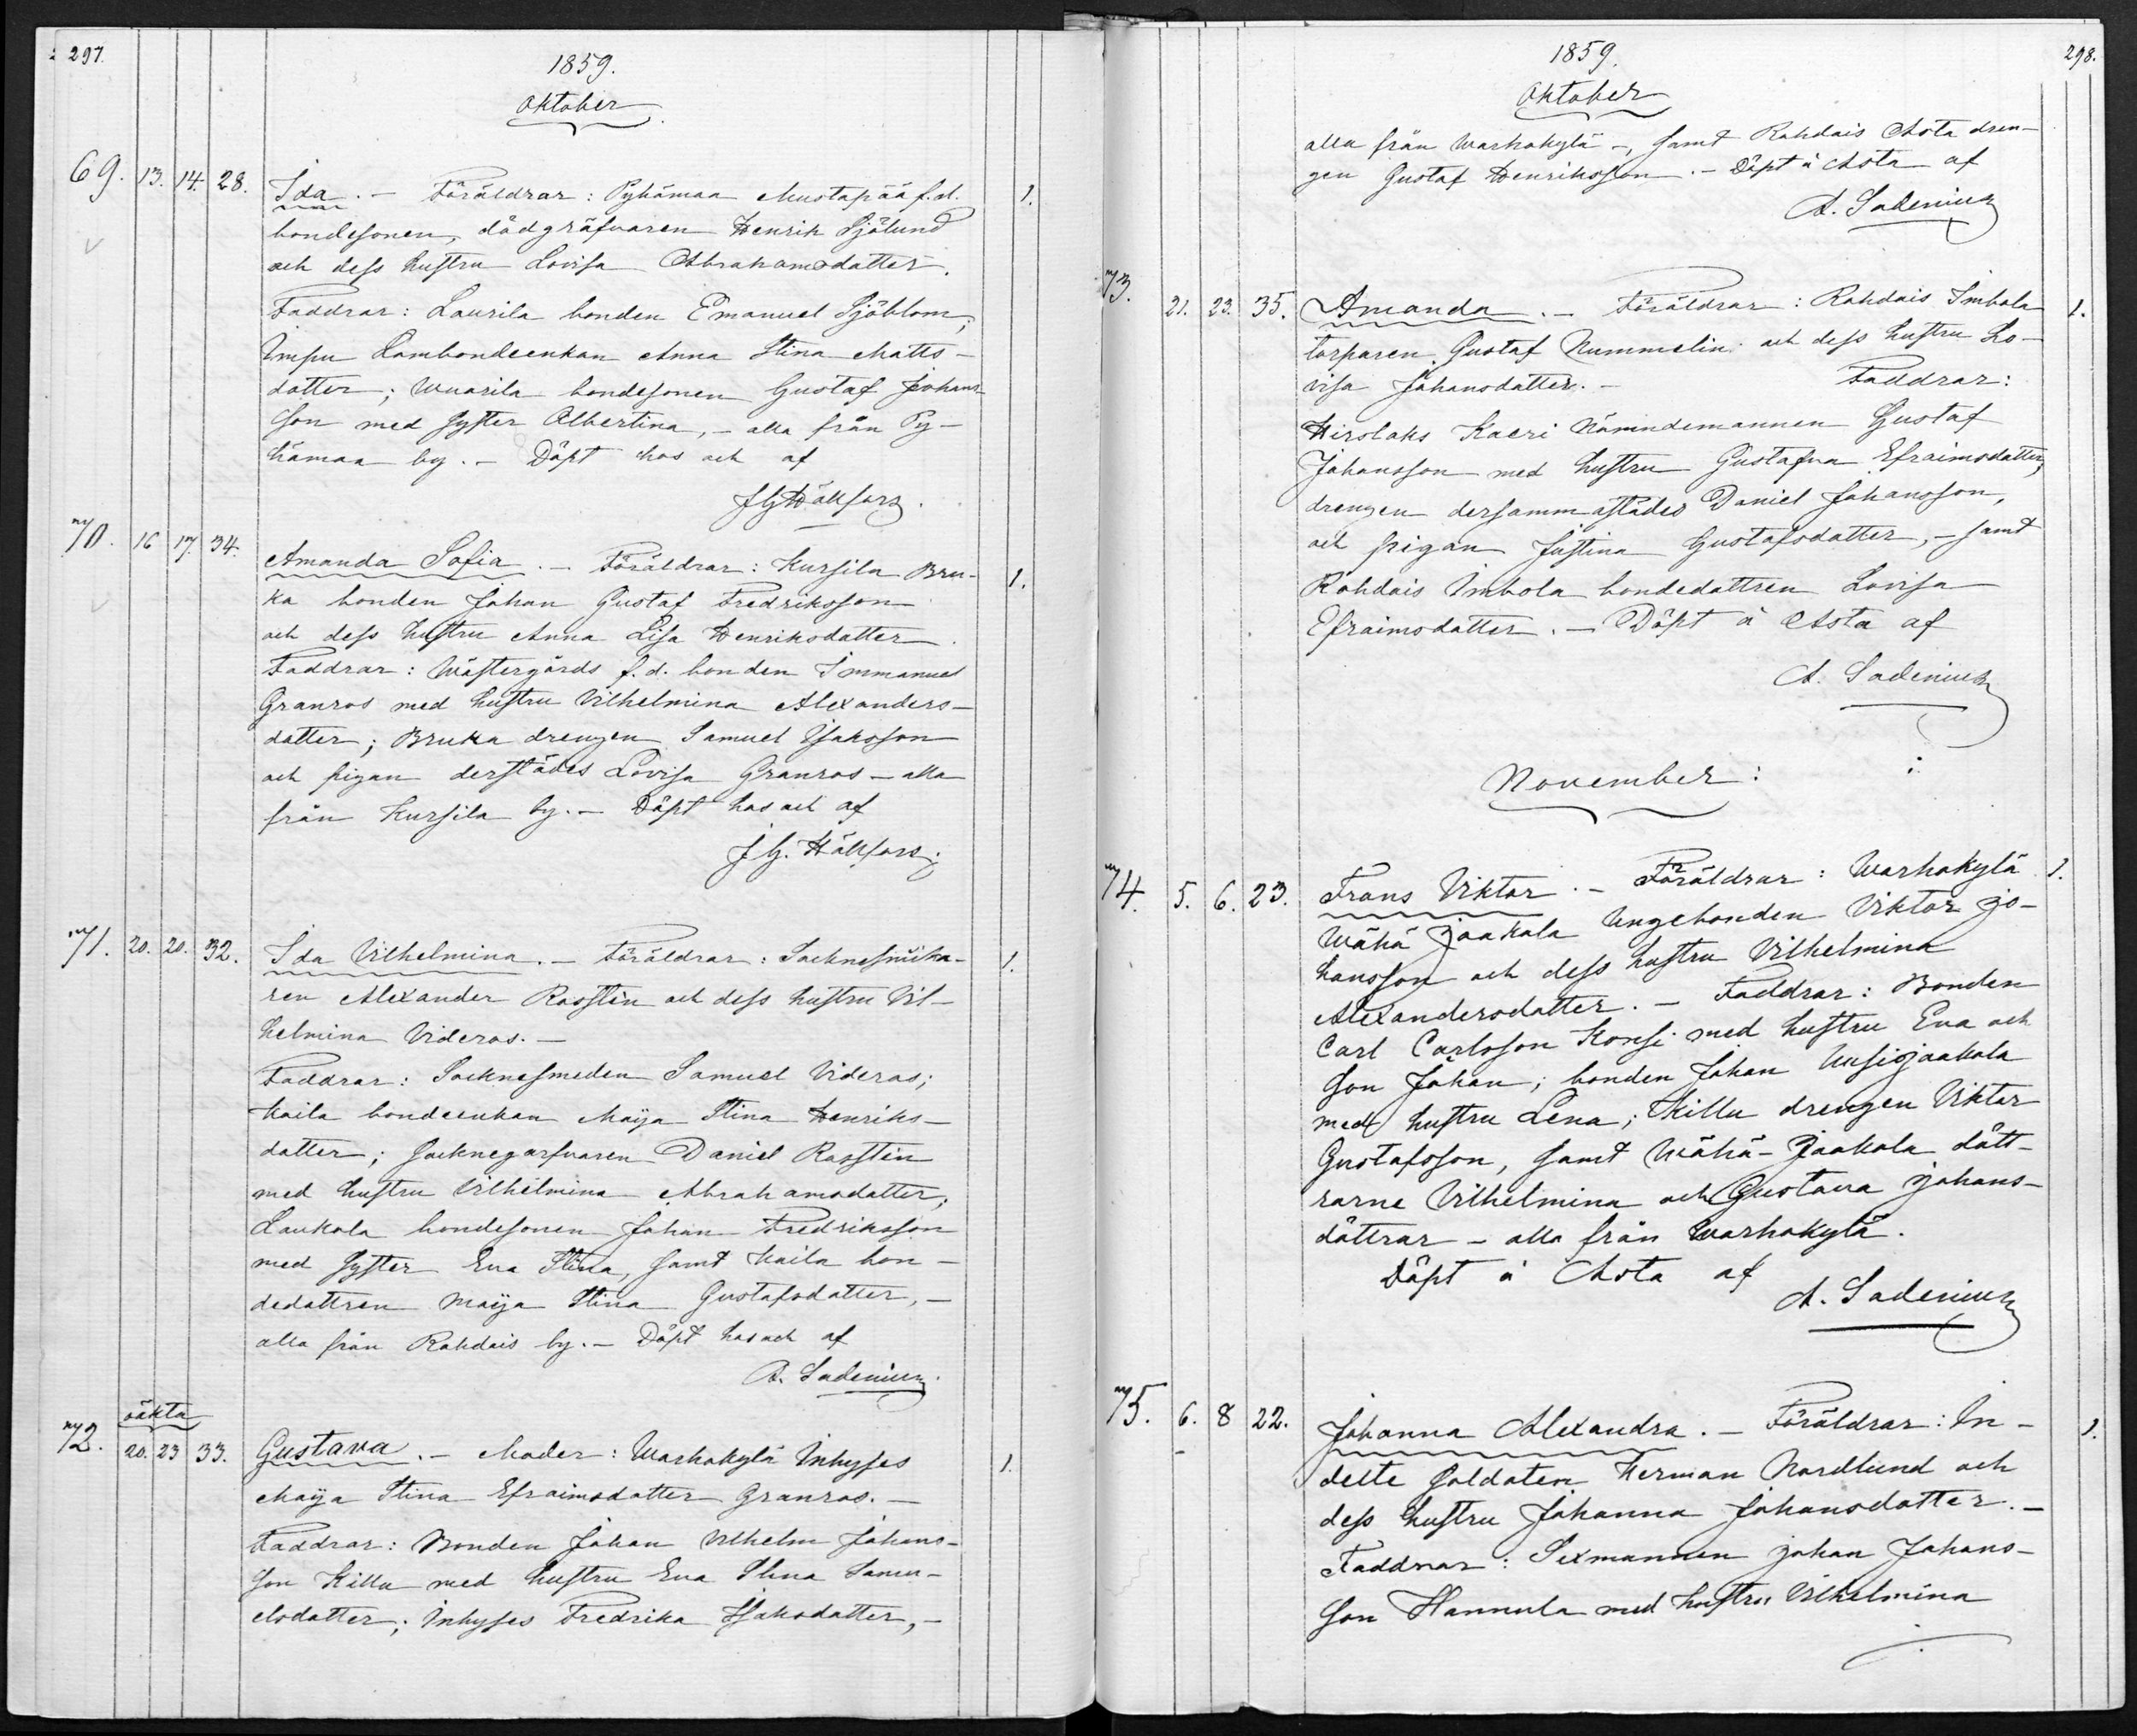 297.
1859.
Oktober
69. 13. 14. 28. Ida. – Föräldrar: Pyhämaa Mustapää f.d. 1.
bondesonen, dödgräfvaren Henrik Sjölund
och dess hustru Lovisa Abrahamsdatter.
Faddrar: Laurila bonden Emanuel Sjöblom;
Impu Lambondeenkan Anna Stina Matts-
datter; Wuarila bondesonen Gustaf Johans-
son med syster Albertina, – alla från Py-
hämaa by. – Döpt hos och af
J G Hällfors.
70. 16 17. 34. Amanda Sofia. – Föräldrar: Kursila Bru- 1.
ka bonden Johan Gustaf Fredriksson
och dess hustru Anna Lisa Henriksdatter.
Faddrar: Wästergårds f.d. bonden Immanuel
Granros med hustru Vilhelmina Alexanders-
datter; Bruka drengen Samuel Isaksson
och pigan derstädes Lovisa Granros – alla
från Kursila by. – Döpt hos och af
J G. Hällfors.
71. 20. 20. 32. Ida Vilhelmina. – Föräldrar: Socknesnicka- 1.
ren Alexander Rosstén och dess hustru Vil-
helmina Videros. –
Faddrar: Socknesmeden Samuel Videros;
Kaila bondeenkan Maija Stina Henriks-
datter; Socknegarfvaren Daniel Rosstén
med hustru Vilhelmina Abrahamsdatter;
Laukola bondesonen Johan Fredriksson
med syster Eva Stina, samt Kaila bon-
dedattren Maija Stina Gustafsdatter, –
alla från Rahdais by. – Döpt hos och af
A. Sadenius.
oäkta
72. 20. 23 33. Gustava. – Moder: Warhokylä Inhyses 1.
Maija Stina Efraimsdatter Granros. –
Faddrar: Bonden Johan Vilhelm Johans-
son Killu med hustru Eva Stina Samu-
elsdatter; Inhyses Fredrika Isaksdatter, –
298.
1859.
Oktober
alla från Warhokylä –, samt Rahdais Asta dren-
gen Gustaf Henriksson. – Döpt å Asta af
A. Sadenius
73. 21. 23. 35. Amanda. – Föräldrar: Rahdais Imbola 1.
torparen Gustaf Nummelin och dess hustru Lo-
visa Johansdatter. – Faddrar:
Hirslaks Kaeri Nämndemannen Gustaf
Johansson med hustru Gustafva Efraimsdatter,
drengen dersammastädes Daniel Johansson,
och pigan Justina Gustafsdatter, – samt
Rahdais Imbola bondedattren Lovisa
Efraimsdatter. – Döpt å Asta af
A. Sadenius
November:
74. 5. 6. 23. Frans Viktor. – Föräldrar: Warhokylä 1.
Wähä Jaakola Ungebonden Viktor Jo-
hansson och dess hustru Vilhelmina
Alexandersdatter. – Faddrar: Bonden
Carl Carlsson Konsi med hustru Eva och
son Johan; bonden Johan Uusijaakola
med hustru Lena; Killu drengen Viktor
Gustafsson, samt Wähä-Jaakola dått-
rarne Vilhelmina och Gustava Johans-
dåttrar – alla från Warhokylä.
Döpt å Asta af
A. Sadenius
75. 6. 8 22. Johanna Alexandra. – Föräldrar: In- 1.
delte Soldaten Herman Nordlund och
dess hustru Johanna Johansdatter. –
Faddrar: Sexmannen Johan Johans-
son Hannula med hustru Vilhelmina